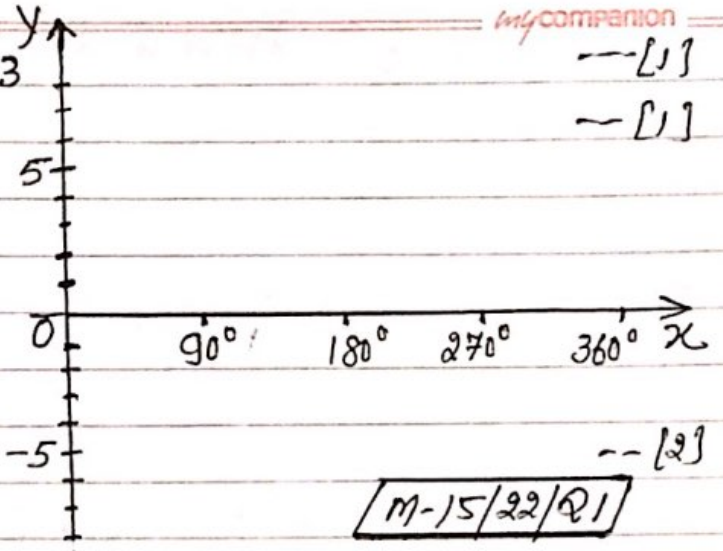 mycompanion
y
—[1]
3
—[1]
5
0 90° 180° 270° 360° x
-5 --[2]
M-15/22/Q1